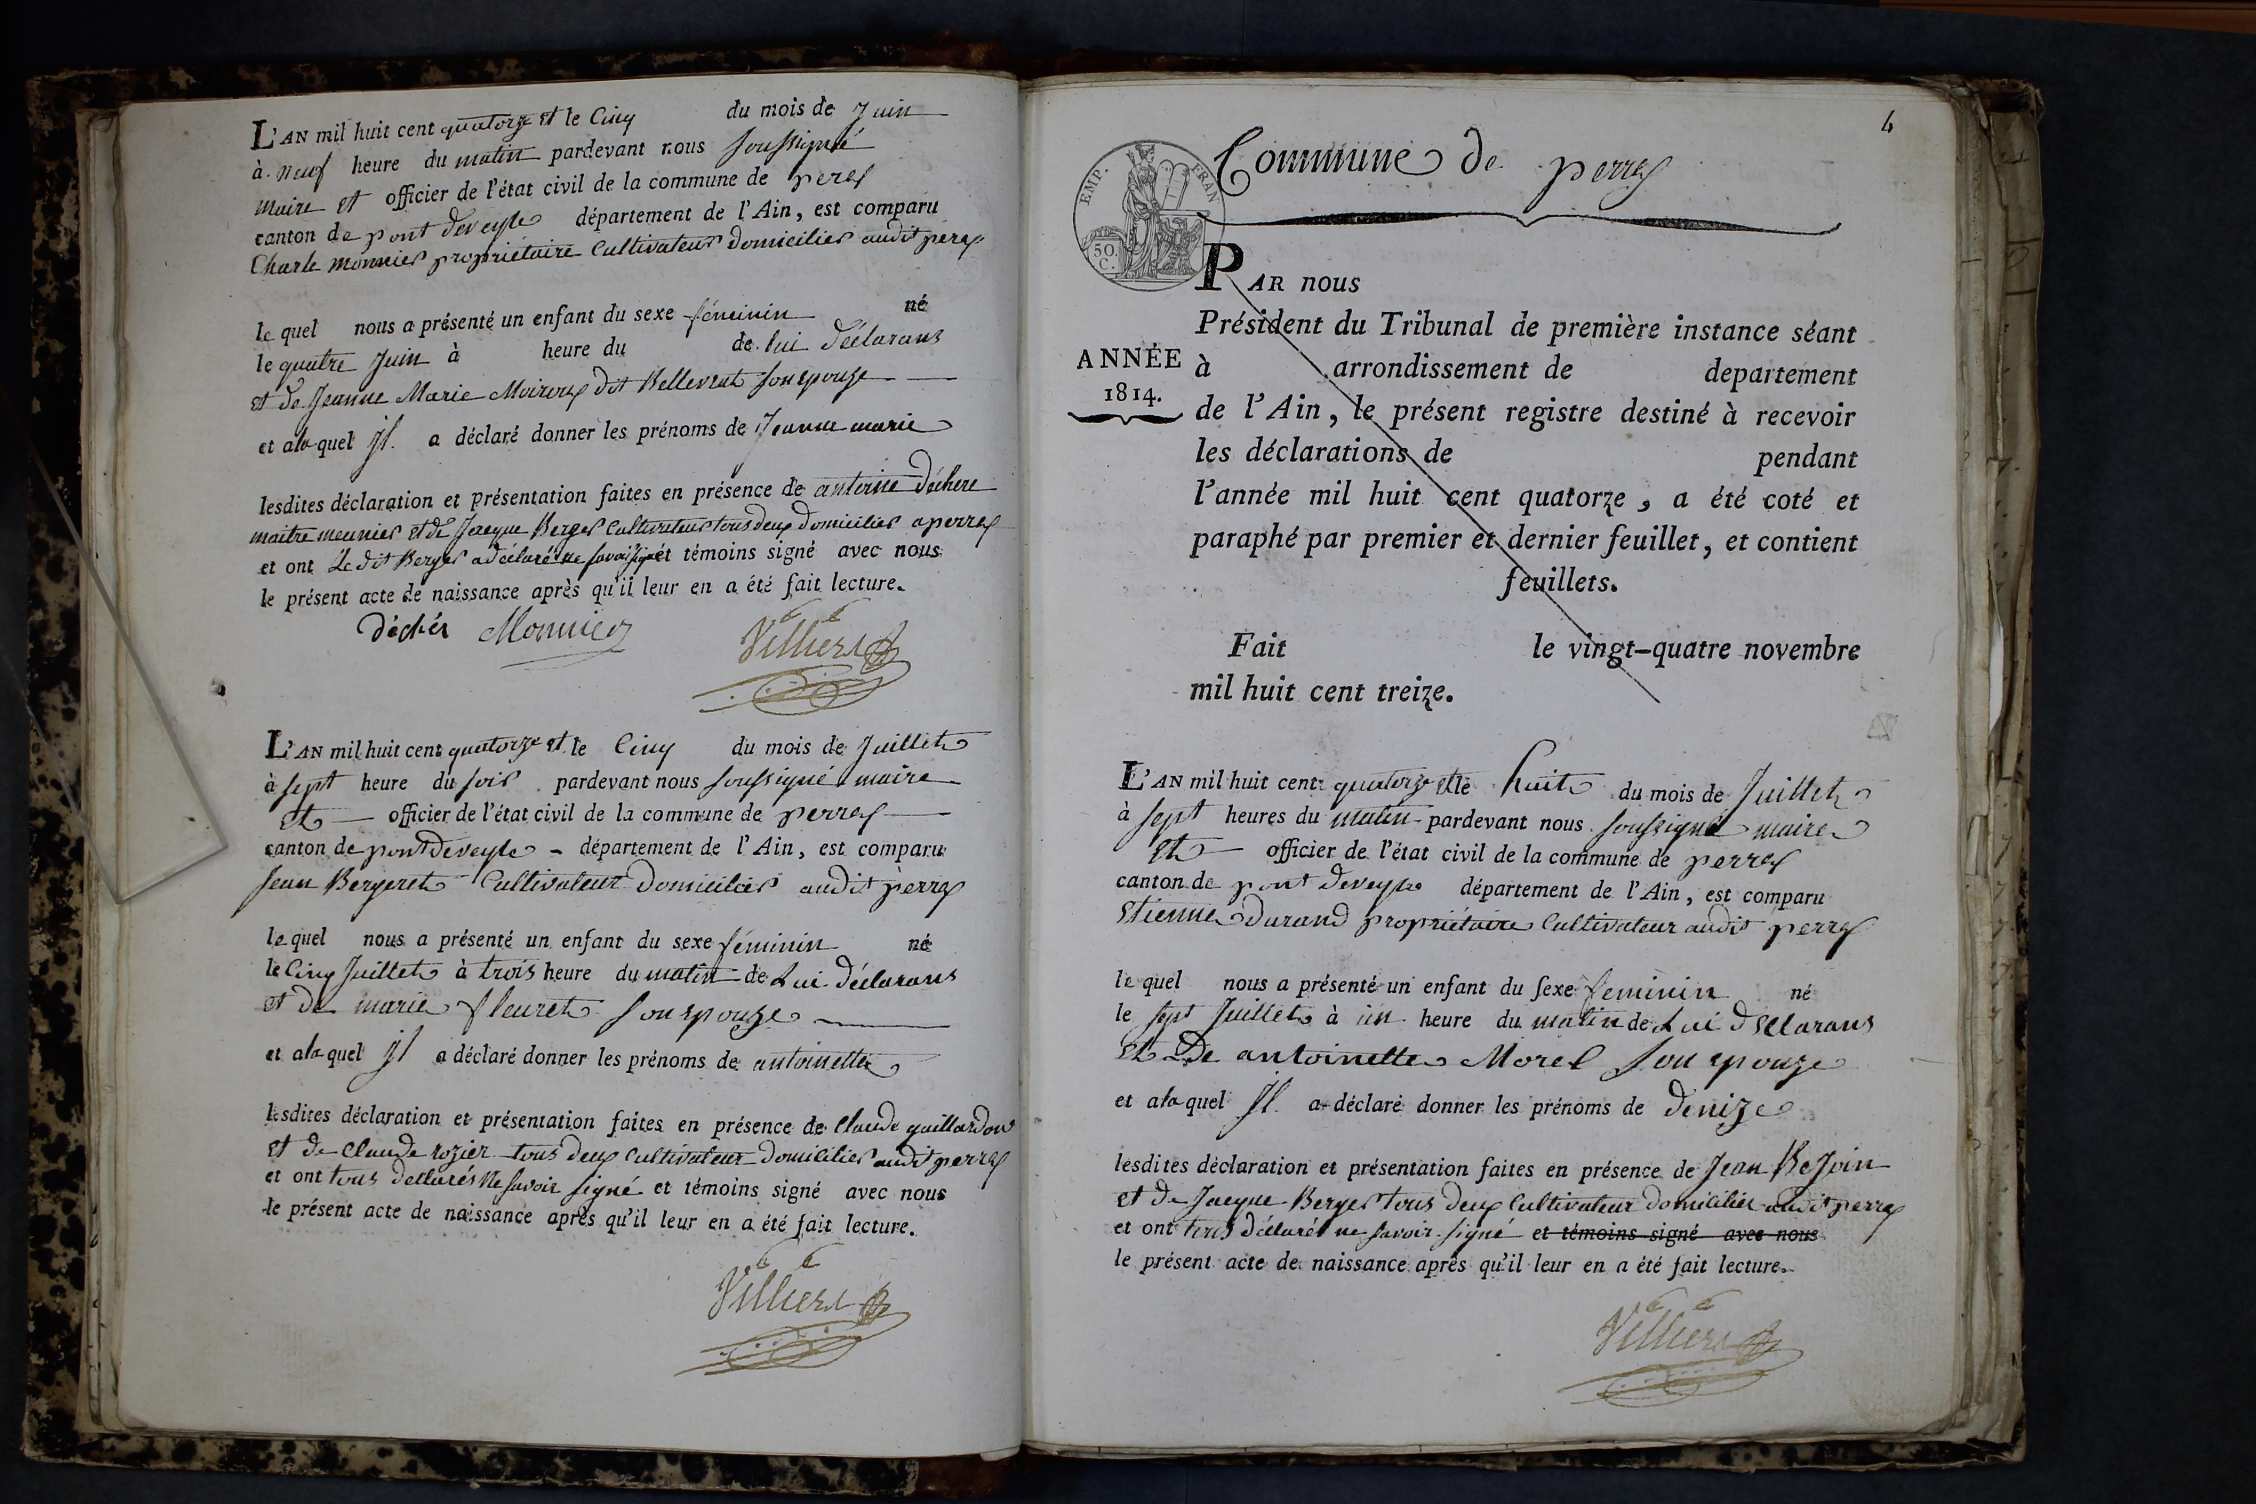 L'AN mil huit cent quatorze et le Cinq du mois de Juin
à neuf heure du matin pardevant nous soussigné
maire et officier de l'état civil de la commune de perex
canton de pont deveyle département de l'Ain, est comparu
Charle monnier propriétaire Cultivateur domicilier audit perex
le quel nous a présenté un enfant du sexe féminin né
le quatre Juin à heure du de lui déclarans
et de Jeanne Marie dit son epouze
et ala quel Jl a déclaré donner les prénoms de Jeanne marie
lesdites déclaration et présentation faites en présence de antoine déchere
maitre meunier et de Jacque Berger Cultivateur tous deux domicilier a perrex
et ont Le dit Berger a déclaré ne savoir signé et témoins signé avec nous
le présent acte de naissance après qu'il leur en a été fait lecture.
déchér Monnier Villiers
L'AN mil huit cent quatorze et le Cinq du mois de Juillet
à sept heure du soir pardevant nous soussigné maire
et officier de l'état civil de la commune de perrex
canton de pont deveyle département de l'Ain, est comparu
Jean Bergeret Cultivateur domicilier audit perrex
le quel nous a présenté un enfant du sexe féminin né
le Cinq Juillet à trois heure du matin de Lui déclarans
et de marie fleuret son epouze
et ala quel Jl a déclaré donner les prénoms de antoinette
lesdites déclaration et présentation faites en présence de Claude guillardon
et de Claude rozier tous deux Cultivateur domicilier audit perrex
et ont tous declarés ne savoir signé et témoins signé avec nous
le présent acte de naissance après qu'il leur en a été fait lecture.
Villiers
4
Commune de perrex
EMP. FRAN
50.
C.
PAR nous
Président du Tribunal de première instance séant
ANNÉE
1814.
à arrondissement de departement
de l'Ain, le présent registre destiné à recevoir
les déclarations de pendant
l'année mil huit cent quatorze, a été coté et
paraphé par premier et dernier feuillet, et contient
feuillets.
Fait le vingt-quatre novembre
mil huit cent treize.
L'AN mil huit cent quatorze et le huit du mois de Juillet
à sept heures du matin pardevant nous soussigné maire
et officier de l'état civil de la commune de perrex
canton de pont deveyle département de l'Ain, est comparu
Etienne durand propriétaire Cultivateur audit perrex
le quel nous a présenté un enfant du sexe feminin né
le sept Juillet à un heure du matin de Lui déclarans
et De antoinette Morel son epouze
et ala quel Jl a déclaré donner les prénoms de denize
lesdites déclaration et présentation faites en présence de Jean
et de Jacque Berger tous deux Cultivateur domicilier audit perrex
et ont tous déclaré ne savoir signé et témoins signé avec nous
le présent acte de naissance après qu'il leur en a été fait lecture.
Villiers